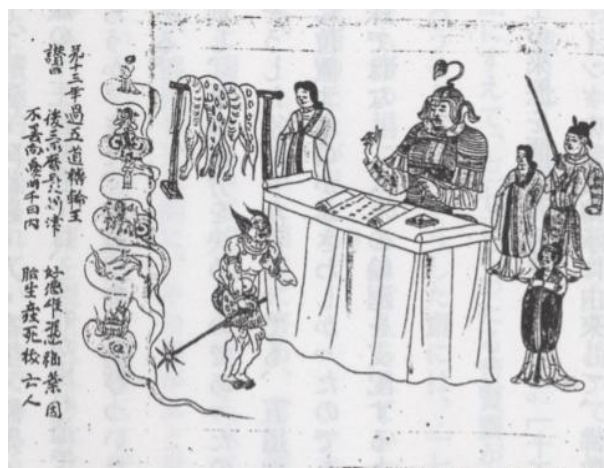 第十三年過五道轉輪王
讚曰 後三所曆是開津 好惡唯憑福業因
不善尚憂千日内 胎生產死拔亡人